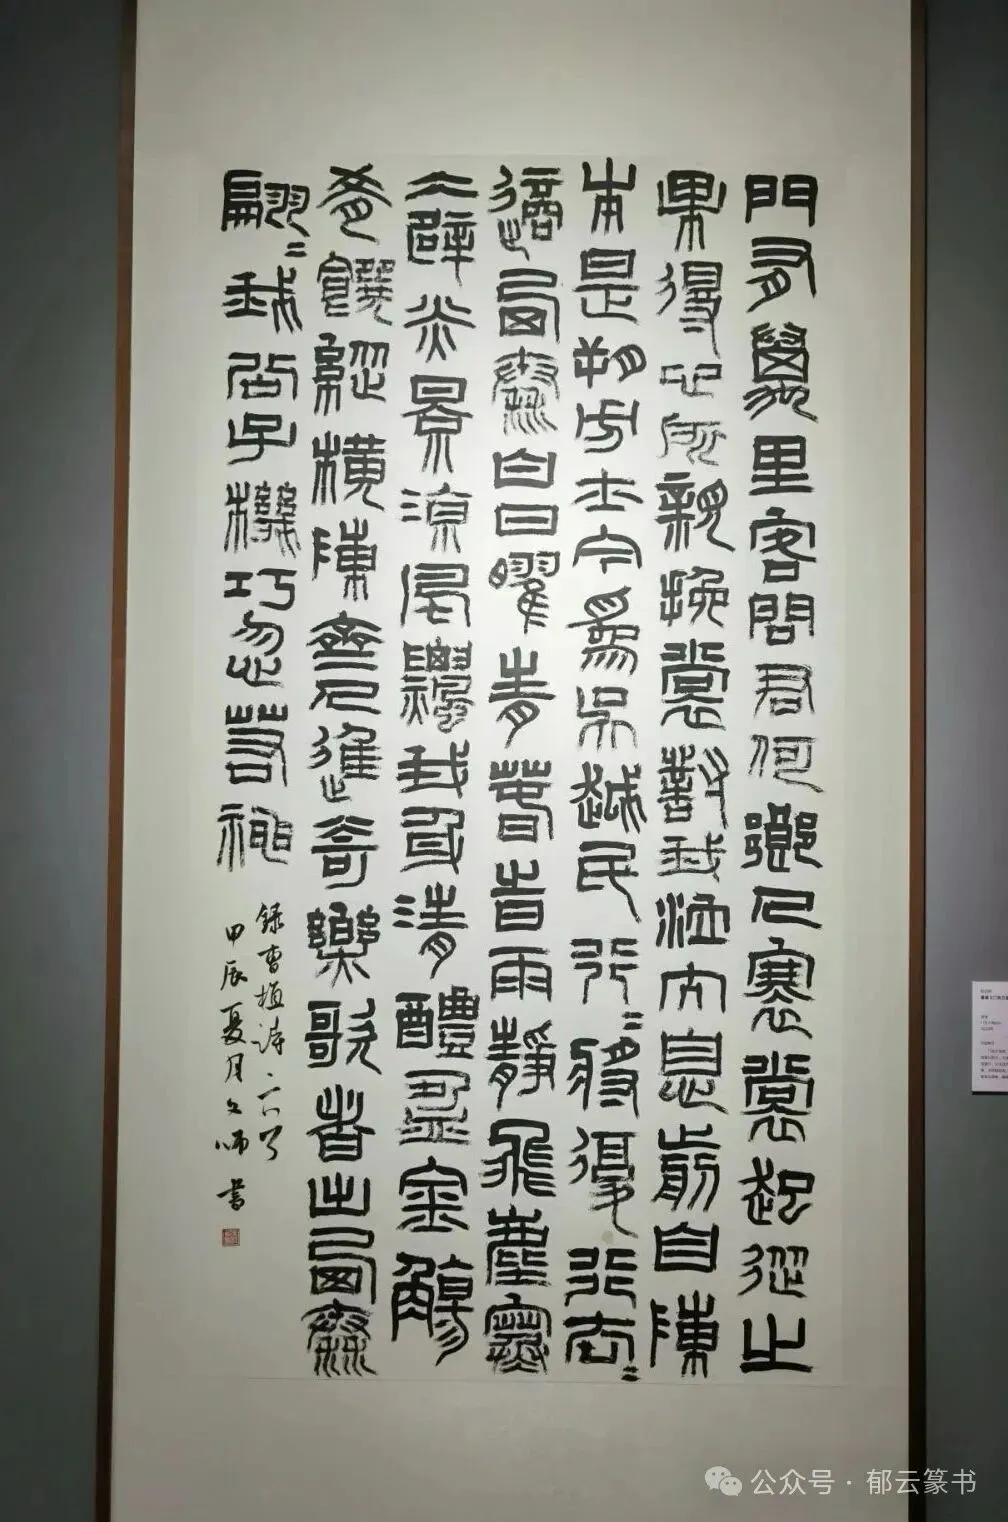 門有萬里客問君何鄉人褰裳起從之
果得心所親挽裳對我泣太息前自陳
本是朔方士今為吳越民行〻將復行去〻
適西秦白日曜青春時雨靜飛塵寒
冰辟炎景涼風飄我身清醴盈金觴
肴饌縱橫陳齊人進奇樂歌者出西秦
翩〻我公子機巧忽若神
錄曹植詩二首
甲辰夏月文师書
公众号 · 郁云篆书